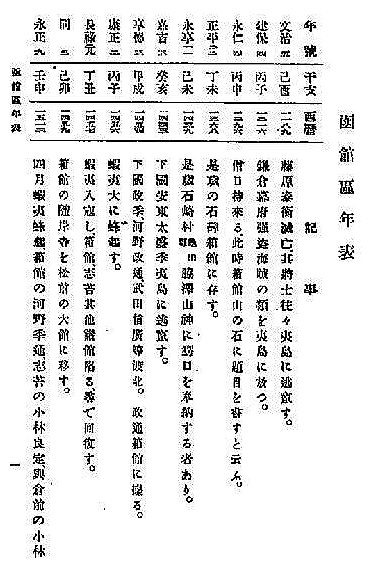 函館區年表
年號 干支 西曆 記事
文治五 己酉 一一八九 藤原泰衡滅亡、其將士往々夷島に逃竄す。
建保四 丙子 一二一六 鎌倉幕府强盜海賊の類を夷島に放つ。
永仁四 丙申 一二九六 僧日持來る、此時箱館山の石に題目を書すと云ふ。
正平 丁未 一三六七 是歳の石碑箱館に存す。
永享 己未 一四三九 是歳石崎村脇澤山神に鰐口を奉納する者あり。
嘉吉三 癸亥 一四四三 下國安東太盛季夷島に逃竄す。
享德三 甲戌 一四五四 下國政季、河野政通、武田信廣等渡北。政通箱館に據る。
康正二 丙子 一四五六 蝦夷大に蜂起す。
長祿元 丁丑 一四五七 蝦夷入寇し箱館志苔其他諸館陷る、尋で回復す。
同三 己卯 一四五九 箱館の隨岸寺を松前の大館に移す。
永正九 壬申 一五一二 四月蝦夷蜂起、箱館の河野季通、志苔の小林良定、與倉前の小林
函館區年表
一